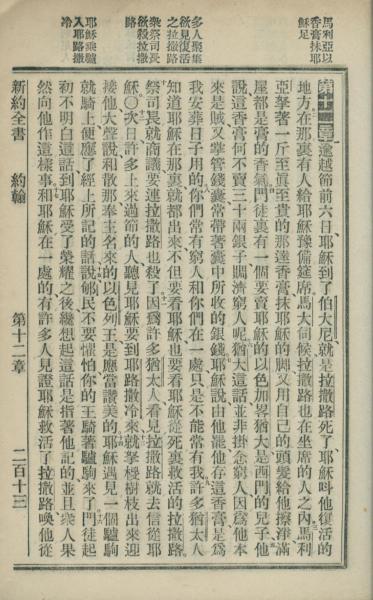 馬利亞以
香膏抹耶
穌足
多人聚集
欲見復活
之拉撒路
衆祭司長
欲殺拉撒
路
耶穌乘驢
入耶路撒
冷
第十二章逾越節前六日、耶穌到了伯大尼、就是拉撒路死了、耶穌叫他復活的
地方、在那裏有人給耶穌豫備筵席、馬大伺候、拉撒路也在坐席的人之內、馬利
亞拏著一斤至眞至貴的那達香膏、抹耶穌的脚、又用自己的頭髮給他擦淨、滿
屋都是膏的香氣、門徒裏有一個要賣耶穌的以色加畧猶大、是西門的兒子、他
說、這香膏何不賣三十兩銀子賙濟窮人呢、猶大這話、並非掛念窮人、因爲他本
來是賊、又掌管錢囊、常帶著囊中所收的銀錢、耶穌說、由他罷、他存這香膏、是爲
我安葬日子用的、你們常有窮人和你們在一處、只是不能常有我、許多猶太人
知道耶穌在那裏、就都出來、不但要看耶穌、也要看耶穌從死裏救活的拉撒路、
祭司長就商議、要連拉撒路也殺了、因爲許多猶太人、看見拉撒路、就去信從耶
穌、○次日許多上來過節的人、聽見耶穌要到耶路撒冷來、就拏椶樹枝出來迎
接他、大聲說、和散那、奉主名來的以色列王、是應當讚美的、耶穌遇見一個驢駒、
就騎上、便應了經上所記的話說、郇民不要懼怕、你的王騎著驢駒來了、門徒起
初不明白這話、到耶穌受了榮耀之後、纔想起這話是指著他記的、並且衆人果
然向他作這樣事、和耶穌在一處的、有許多人見證耶穌救活了拉撒路、喚他從
新約全書 約翰 第十二章 二百十三